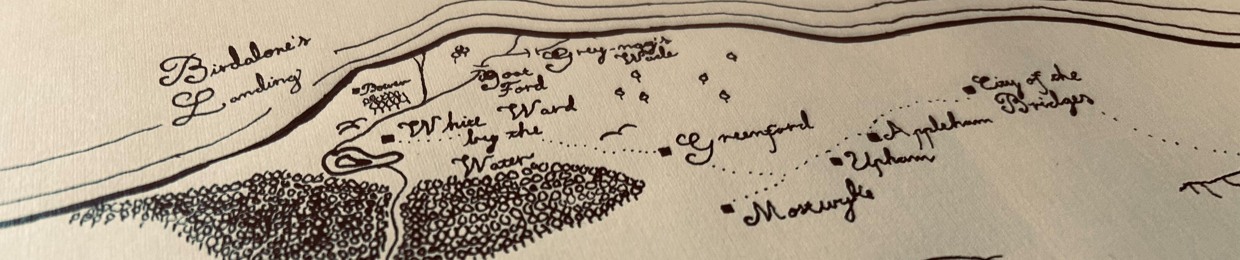 Birdalone's
Landing
Bower
Goat
Ford
Grey-nag's
Wade
White Ward
by the
Water
Greenford
City of the
Bridges
Appleham
Upham
Mostwyke